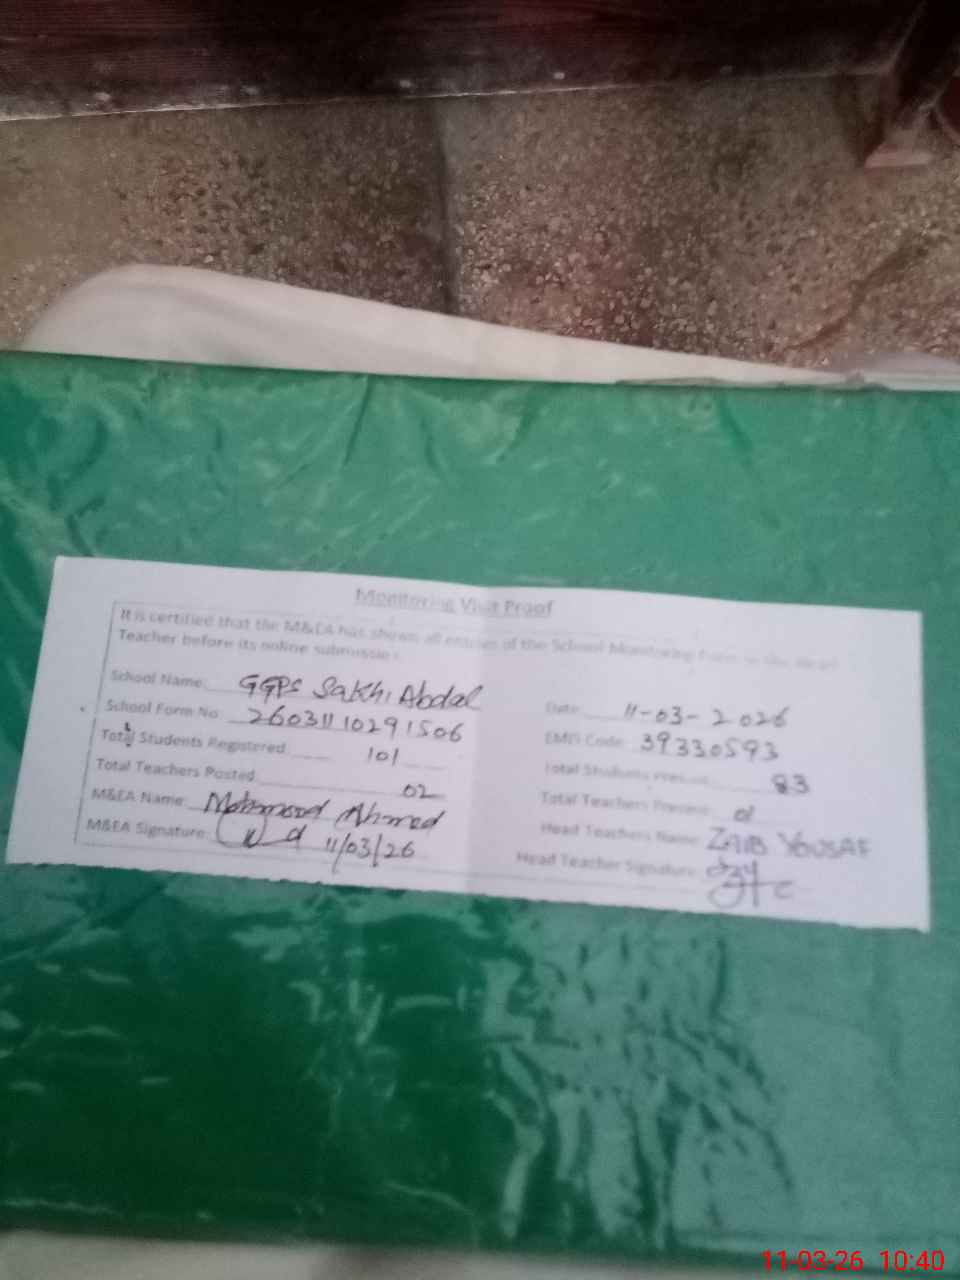 Monitoring Visit Proof
It is certified that the M&EA has shown all entries of the School Monitoring Form to the Head
Teacher before its online submission.
School Name: GGPS Sakhi Abdal
Date: 11-03-2026
School Form No. 26031110291506
EMIS Code: 39330593
Total Students Registered 101
Total Students Present 83
Total Teachers Posted 02
Total Teachers Present 01
M&EA Name: Mehmood Ahmed
Head Teachers Name: ZAIB YOUSAF
M&EA Signature: 11/03/26
Head Teacher Signature:
11-03-26 10:40